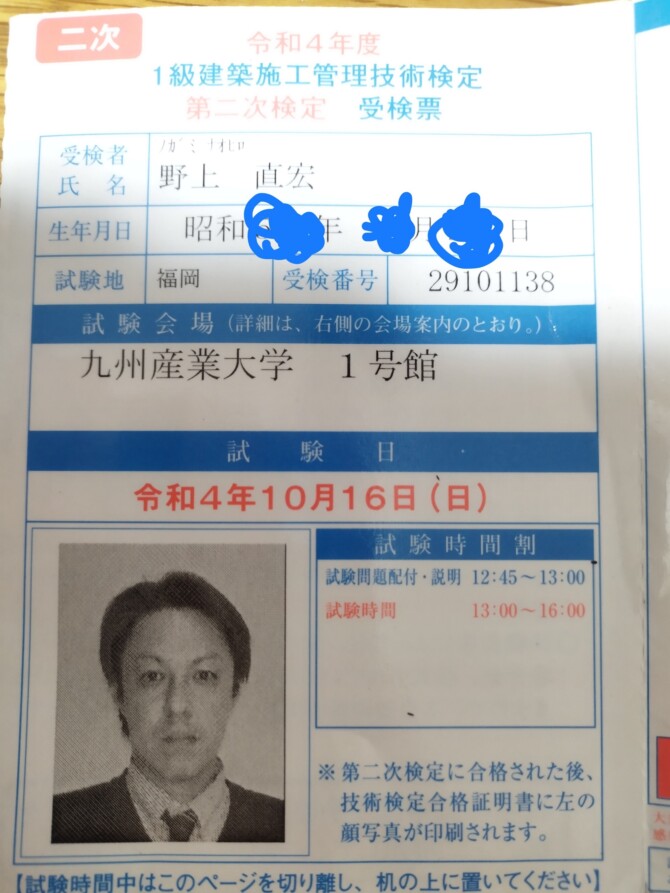 二次
令和4年度
1級建築施工管理技術検定
第二次検定 受検票
受検者
氏名
ﾉｶﾞﾐ ﾅｵﾋﾛ
野上 直宏
生年月日
昭和 年 月 日
試験地
福岡
受検番号
29101138
試験会場(詳細は、右側の会場案内のとおり。)
九州産業大学 1号館
試験日
令和4年10月16日(日)
試験時間割
試験問題配付・説明 12:45~13:00
試験時間 13:00~16:00
※ 第二次検定に合格された後、
技術検定合格証明書に左の
顔写真が印刷されます。
【試験時間中はこのページを切り離し、机の上に置いてください】